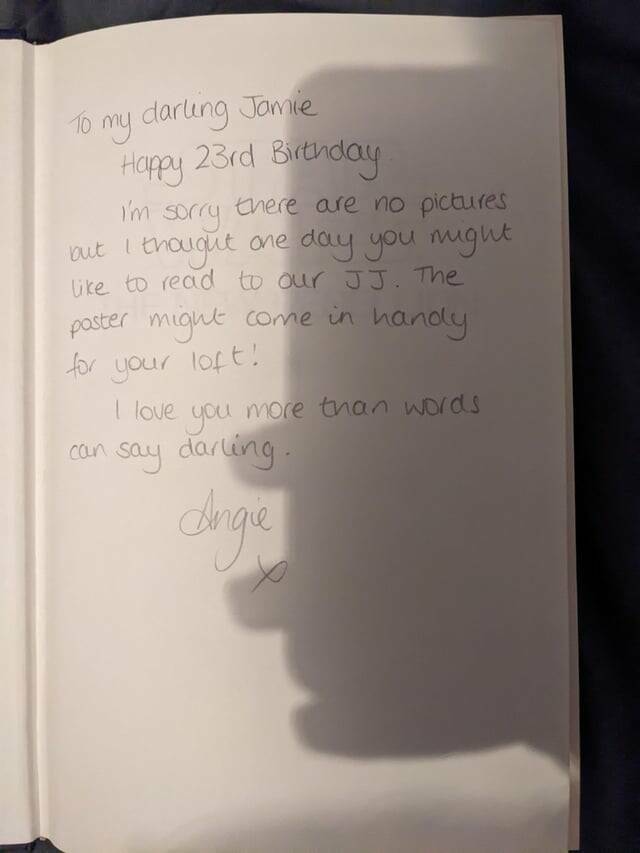 To my darling Jamie
Happy 23rd Birthday.
I'm sorry there are no pictures
but I thought one day you might
like to read to our JJ. The
poster might come in handy
for your loft!
I love you more than words
can say darling.
Angie
x